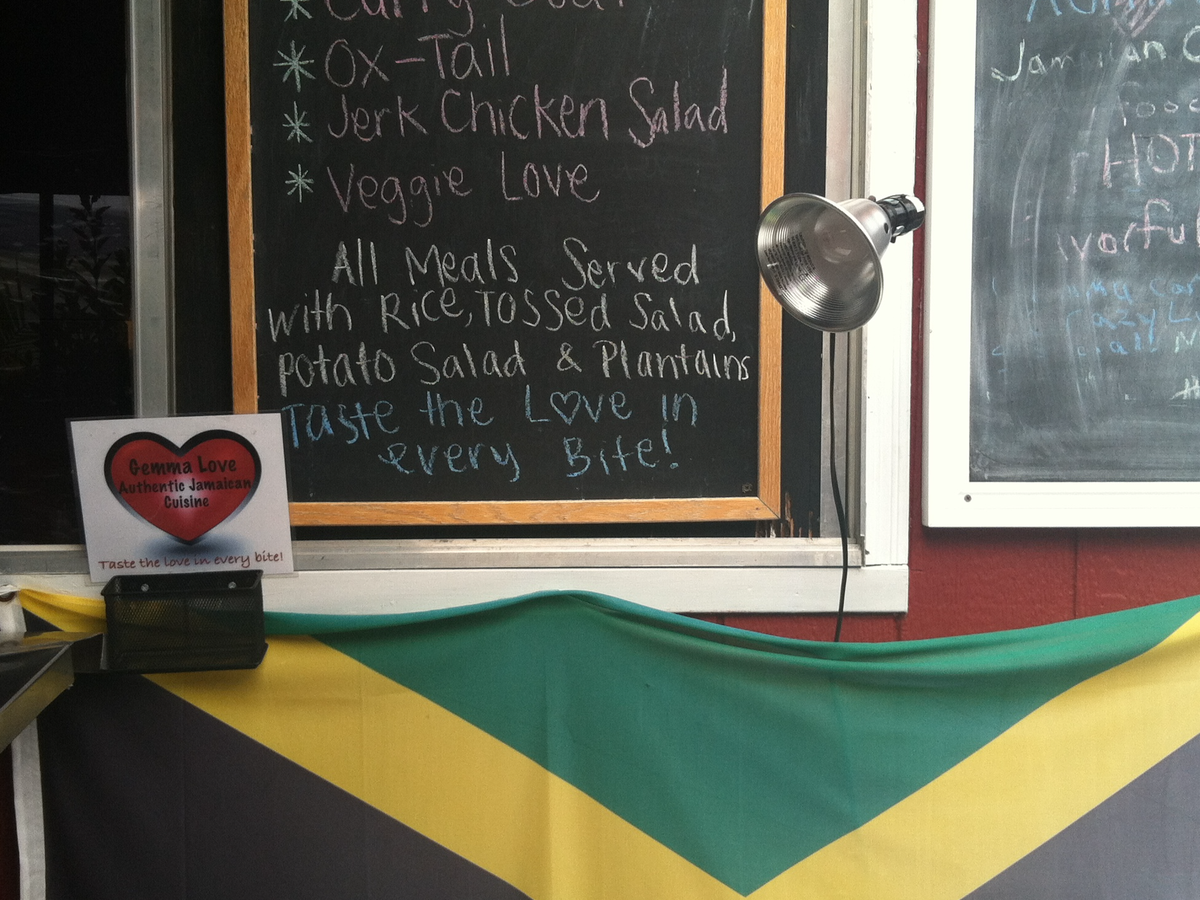 * Curry Goat
* Ox-Tail
* Jerk Chicken Salad
* Veggie Love
All Meals Served
with Rice, Tossed Salad,
potato Salad & Plantains
Taste the L♡ve in
every Bite!
Gemma Love
Authentic Jamaican
Cuisine
Taste the love in every bite!
Jamaican
HOT